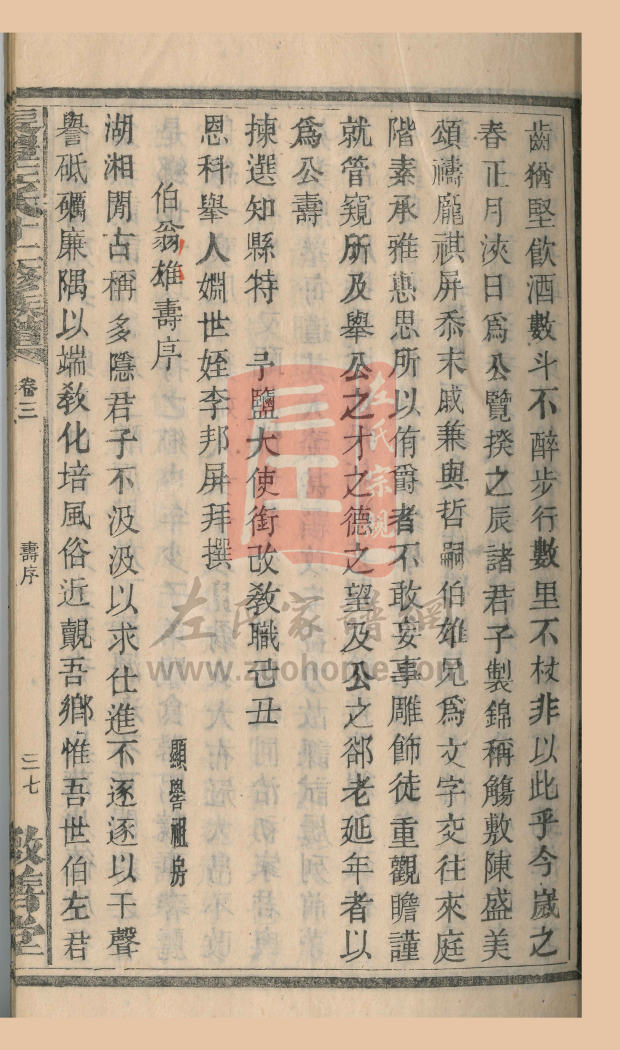 齒猶堅飲酒數斗不醉步行數里不杖非以此乎今歲之
春正月浹日爲公覽揆之辰諸君子製錦稱觴敷陳盛美
頌禱龐祺屏忝末戚兼與哲嗣伯雄兄爲文字交往來庭
階素承雅惠思所以侑爵者不敢妄事雕飾徒重觀瞻謹
就管窺所及舉公之才之德之望及公之郤老延年者以
爲公壽
揀選知縣特 予鹽大使銜改敎職己丑
恩科舉人姻世姪李邦屏拜撰
伯翁雄壽序 顯譽祖房
湖湘閒古稱多隱君子不汲汲以求仕進不逐逐以干聲
譽砥礪廉隅以端敎化培風俗近覿吾鄉惟吾世伯左君
卷三
壽序
三七
左氏宗親
左氏家譜網
www.zuohome.com